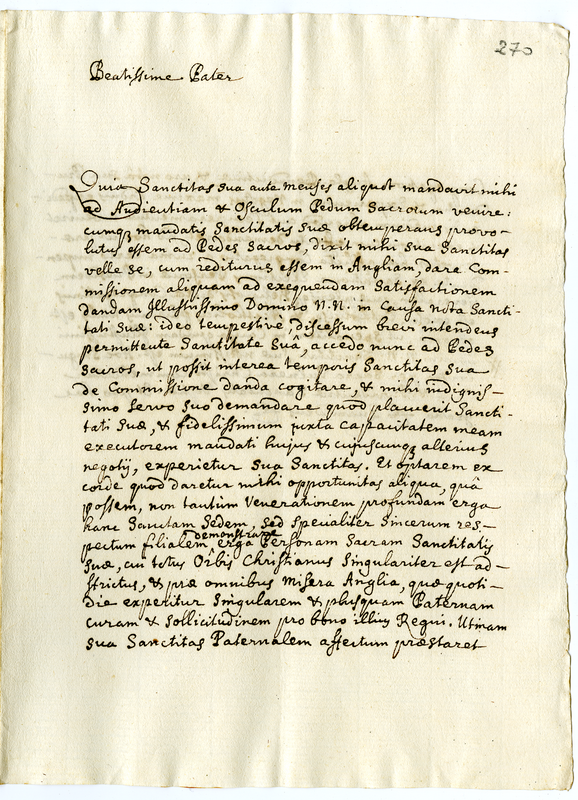 270
Beatissime Pater
Quia Sanctitas sua ante menses aliquot mandavit mihi
ad Audientiam & Osculum Pedum Sacrorum venire:
cumq; mandatis Sanctitatis suæ obtemperans provo-
lutus essem ad Pedes Sacros, dixit mihi sua Sanctitas
velle se, cum rediturus essem in Angliam, dare Com-
missionem aliquam ad exequendam Satisfactionem
dandam Illustrissimo Domino N.N. in Causa nota Sancti-
tati Suæ: ideo tempestivè, discessum brevi intendens
permittente Sanctitate Suâ, accedo nunc ad Pedes
Sacros, ut possit interea temporis Sanctitas sua
de Commissione danda cogitare, & mihi indignis-
simo servo suo demandare quod placuerit Sancti-
tati Suæ, & fidelissimum juxta capacitatem meam
executorem mandati hujus & cujuscumq; alterius
negotij, experietur Sua Sanctitas. Et optarem ex
corde quod daretur mihi opportunitas aliqua, quâ
possem, non tantùm Venerationem profundam erga
hanc Sanctam Sedem, sed specialiter Sincerum res-
demonstrare
pectum filialem erga Personam Sacram Sanctitatis
Suæ, cui totus Orbis Christianus Singulariter est ad-
strictus, & præ omnibus Misera Anglia, quæ quoti-
die experitur Singularem & plusquam Paternam
curam & sollicitudinem pro bono illius Regni. Utinam
sua Sanctitas Paternalem affectum præstaret